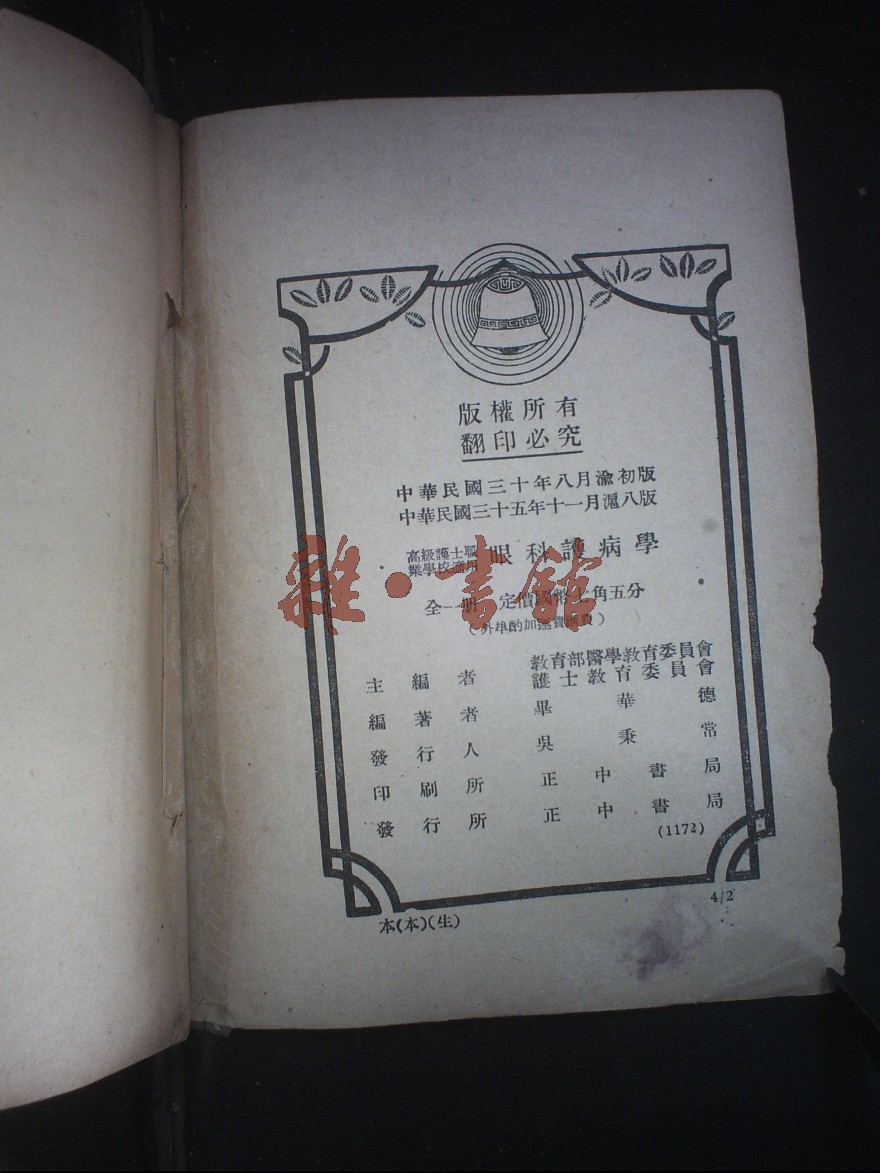 版權所有
翻印必究
中華民國三十年八月渝初版
中華民國三十五年十一月滬八版
高級護士職
業學校適用
眼科護病學
全一冊 定價國幣 角五分
(外埠酌加運費 )
教育部醫學教育委員會
主編者 護士教育委員會
編著者 畢華德
發行人 吳秉常
印刷所 正中書局
發行所 正中書局
(1172)
本(本)(生)
4/2
雜·書館